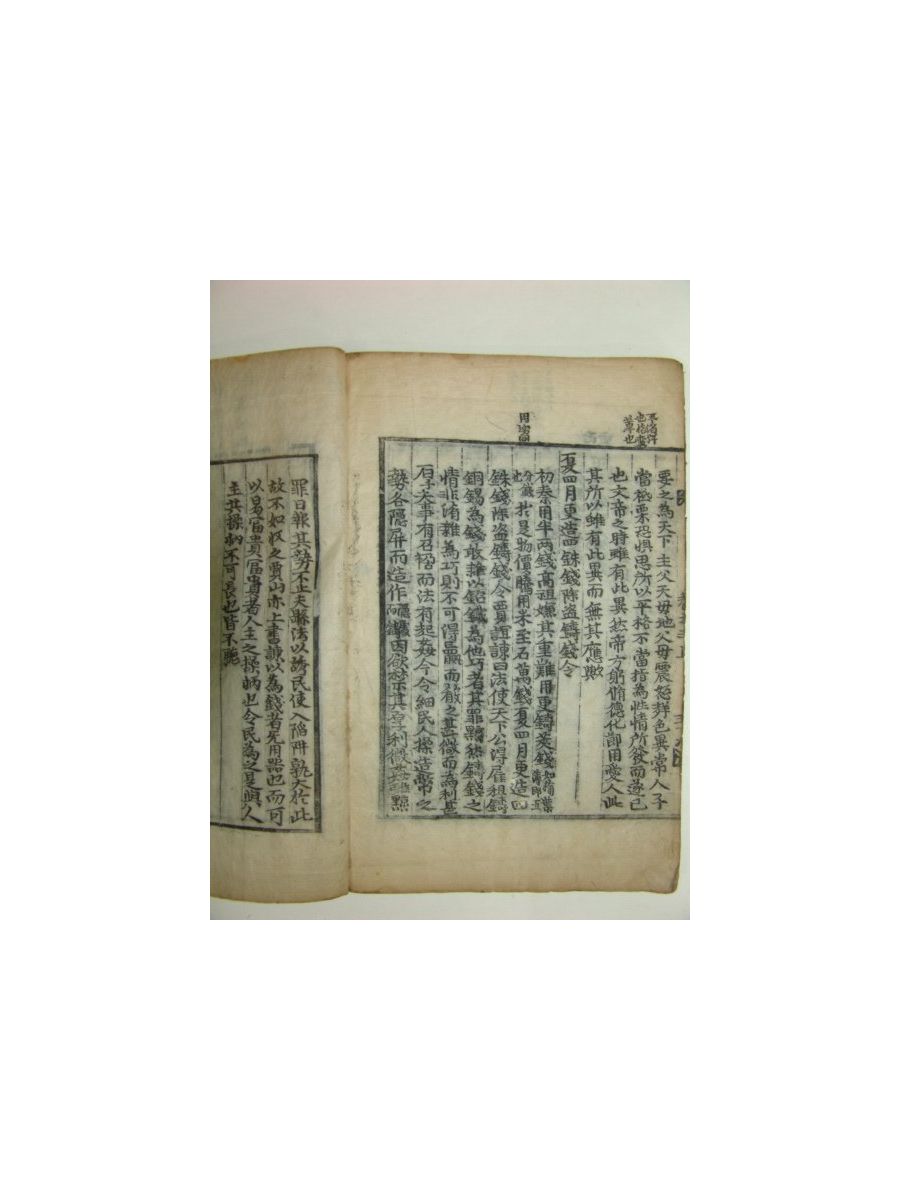 要之為天下主父天母地父母震怒群色異常人子
當極栗恐惧思所以平格不當指為此情所發而遂已
也文帝之時雖有此異然帝方躬脩德化鄙用愛人此
其所以雖有此異而無其應歟
夏四月更造四銖錢除盜鑄錢令
初秦用半兩錢高祖嫌其重難用更鑄莢錢
於是物價騰用米至石萬錢夏四月更造四
銖錢除盜鑄錢令賈誼諫曰法使天下公得雇租鑄
銅錫為錢敢雜以鉛鐵為他巧者其罪黥然鑄錢之
情非淆雜為巧則不可得贏而殽之甚微而為利甚
厚夫事有召禍而法有起姦今令細民人操造幣之
勢各隱屏而造作因欲禁其厚利微姦雖黥
罪日報其勢不止夫縣法以誘民使入陷阱孰大於此
故不如收之賈山亦上書諫以為錢者无用器也而可
以易富貴富貴者人主之操柄也令民為之是與人
主共操柄不可長也皆不聽